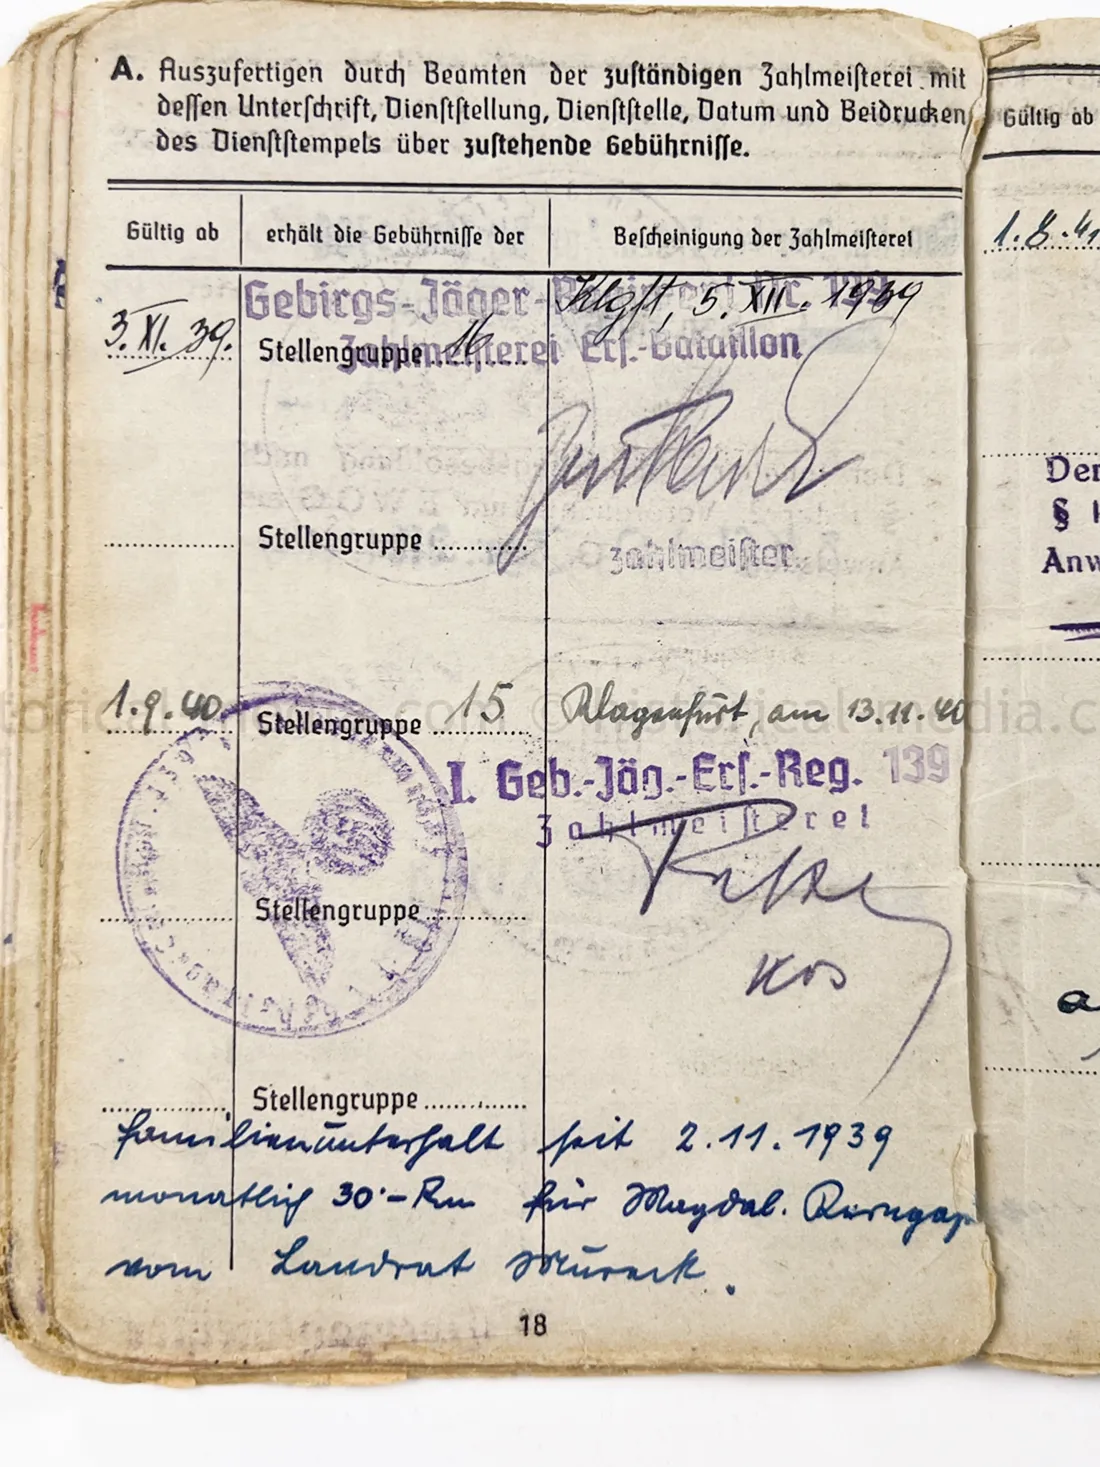 A. Auszufertigen durch Beamten der zuständigen Zahlmeisterei mit
dessen Unterschrift, Dienststellung, Dienststelle, Datum und Beidrucken
des Dienststempels über zustehende Gebührnisse.
Gültig ab erhält die Gebührnisse der Bescheinigung der Zahlmeisterei
Gebirgs-Jäger-
Klgft, 5. XII. 1939
3. XI. 39. Stellengruppe 16
Zahlmeisterei Ers.-Bataillon
Stellengruppe
Zahlmeister
1.9.40 Stellengruppe 15 Klagenfurt, am 13.11.40
I. Geb.-Jäg.-Ers.-Reg. 139
Zahlmeisterei
Stellengruppe
Stellengruppe
Familienunterhalt seit 2.11.1939
monatlich 30.- Rm für Magdal.
vom Landrat Mureck.
18
Gültig ab
1.8.41
Der
§
Anw
a